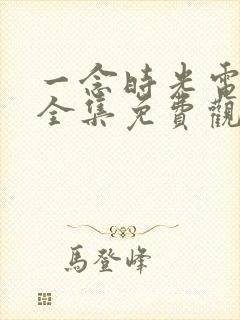 一念時光電
全集免費觀
馬登峰